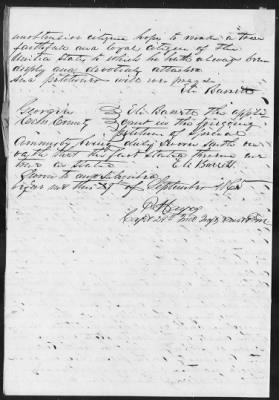 and citizen hopes to make a true
faithful and loyal citizen of the
United States to which he hath always been
deeply and devotedly attached
And petitioner will ever pray
Eli Barrett
Georgia
County
Eli Barrett the appli
cant in the foregoing
petition of Special
Amnesty being duly sworn saith on
oath that the facts stated therein are
true as stated
Eli Barrett
Sworn to and subscribed
before me this 27 of September 1865
Capt